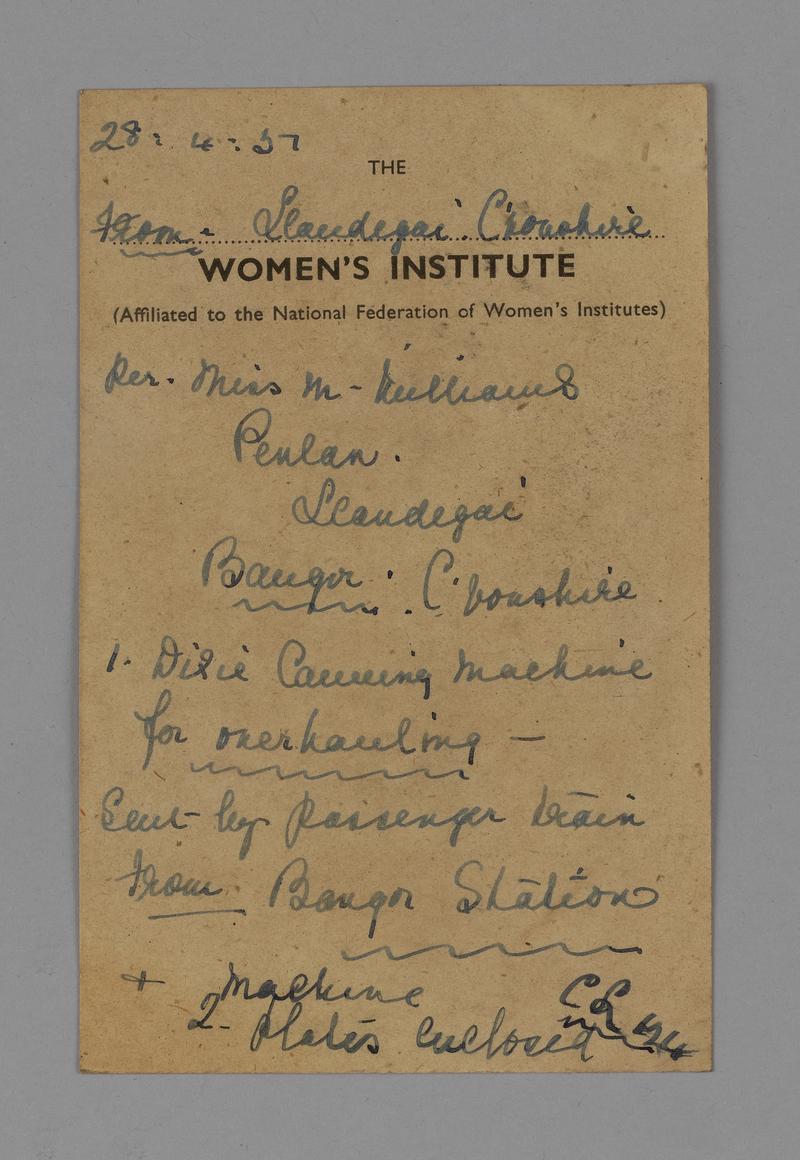 28: 4: 57
THE
From - Llandegai. C'vonshire
WOMEN'S INSTITUTE
(Affiliated to the National Federation of Women's Institutes)
Per. Miss M - Williams
Penlan.
Llandegai
Bangor. C'vonshire
1. Dixie Canning Machine
for overhauling -
Sent by Passenger train
from Bangor Station
+ Machine
2- Plates enclosed